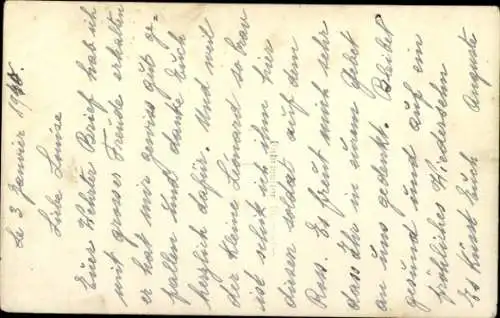 Le 3 Janvier 1918.
Liebe Luise
Euer lehter Brief hab ich
mit grosser Freude erhalten
er hat mir gewiss gut ge-
fallen und danke Euch
herzlich dafür. Und weil
der kleine Leonard so brav
ist schik ich ihm hier
diesen soldat auf dem
Russ. Es freut mich sehr
dass Ihr in eurem Gebet
an uns gedenkt. Bleibet
gesund und auf ein
fröhliches Wiedersehn
Es Küsst Euch Auguste